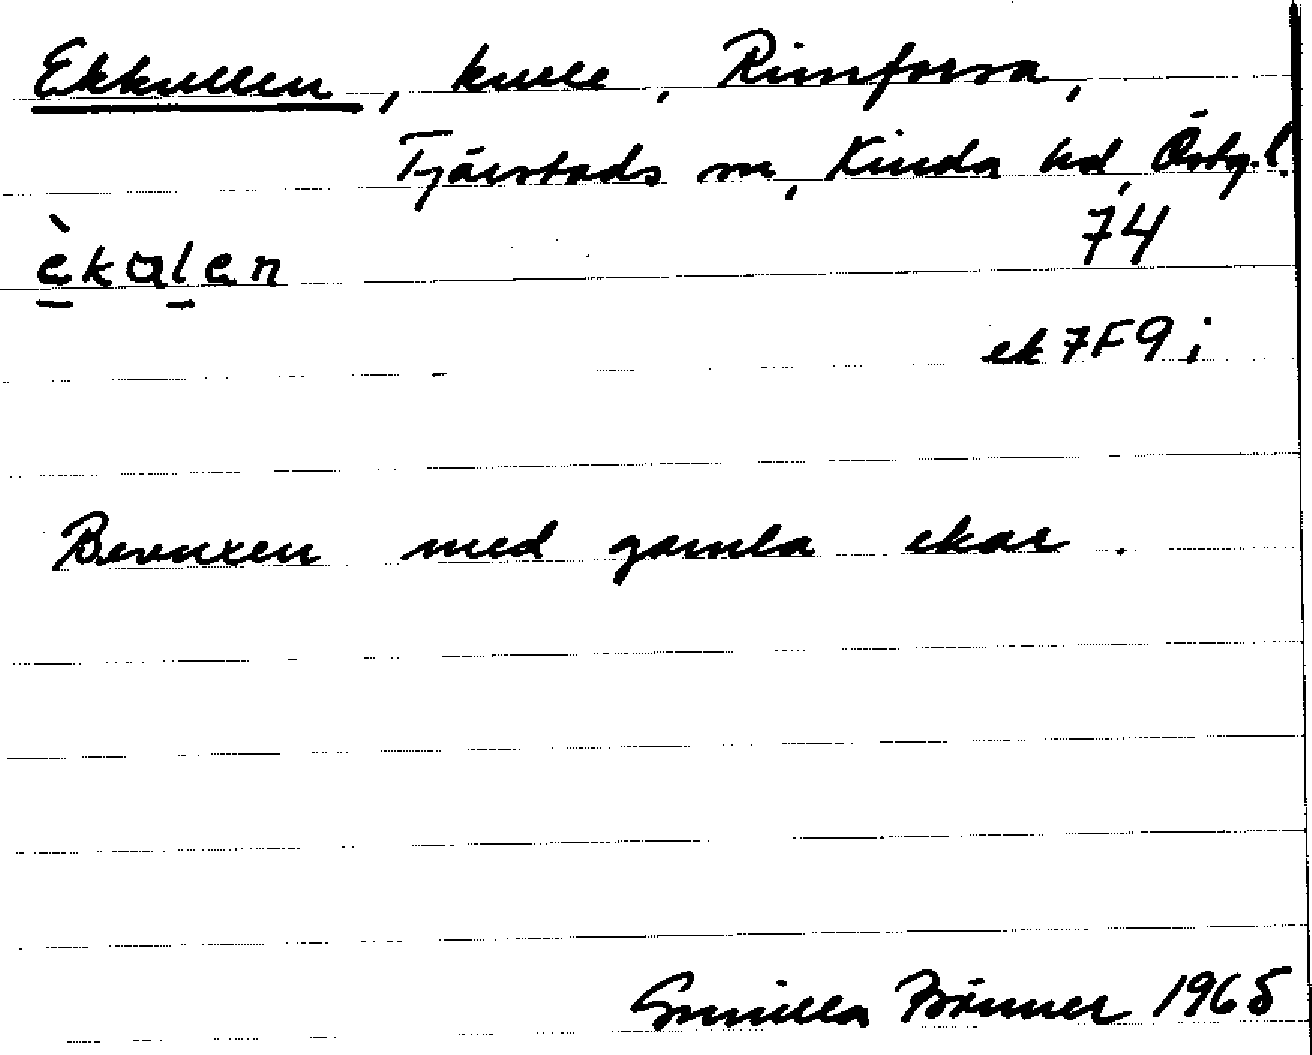 Ekkullen, kulle, Rimforsa,
Tjärstads sn, Kinda hd, Östg.l.
74
èkalen
ek 7F9i
Bevuxen med gamla ekar.
Gunilla 1965